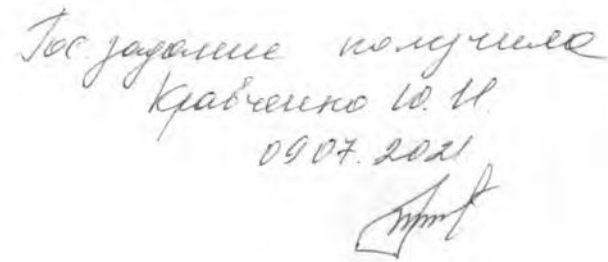 Гос. задание получила
Кравченко Ю. Н.
09.07.2021